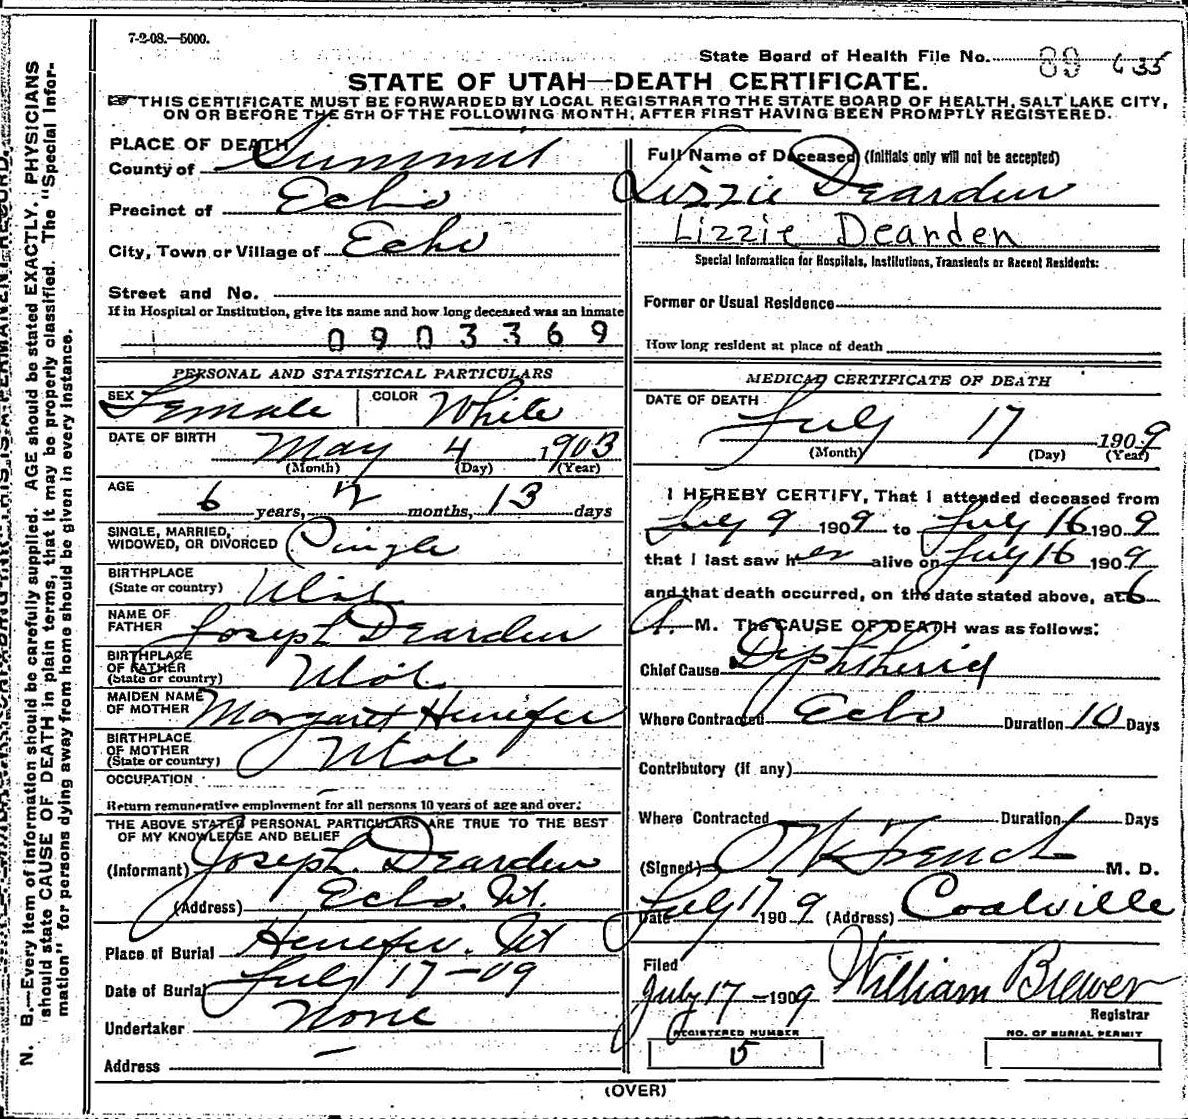 7-2-08.—5000.
State Board of Health File No. 89 635
STATE OF UTAH—DEATH CERTIFICATE.
THIS CERTIFICATE MUST BE FORWARDED BY LOCAL REGISTRAR TO THE STATE BOARD OF HEALTH, SALT LAKE CITY,
ON OR BEFORE THE 5TH OF THE FOLLOWING MONTH, AFTER FIRST HAVING BEEN PROMPTLY REGISTERED.
PLACE OF DEATH
County of Summit
Precinct of Echo
City, Town or Village of Echo
Street and No.
If in Hospital or Institution, give its name and how long deceased was an inmate
0903369
PERSONAL AND STATISTICAL PARTICULARS
SEX Female COLOR White
DATE OF BIRTH May 4 1903
(Month) (Day) (Year)
AGE 6 years, 2 months, 13 days
SINGLE, MARRIED,
WIDOWED, OR DIVORCED Single
BIRTHPLACE
(State or country) Utah
NAME OF
FATHER Joseph Dearden
BIRTHPLACE
OF FATHER
(State or country) Utah
MAIDEN NAME
OF MOTHER Margaret Henefer
BIRTHPLACE
OF MOTHER
(State or country) Utah
OCCUPATION –
Return remunerative employment for all persons 10 years of age and over:
THE ABOVE STATED PERSONAL PARTICULARS ARE TRUE TO THE BEST
OF MY KNOWLEDGE AND BELIEF
(Informant) Joseph Dearden
(Address) Echo. Ut.
Place of Burial Henefer. Ut
Date of Burial July 17-09
Undertaker None
Address –
Full Name of Deceased (Initials only will not be accepted)
Lizzie Dearden
Lizzie Dearden
Special Information for Hospitals, Institutions, Transients or Recent Residents:
Former or Usual Residence
How long resident at place of death
MEDICAL CERTIFICATE OF DEATH
DATE OF DEATH
July 17 1909
(Month) (Day) (Year)
I HEREBY CERTIFY, That I attended deceased from
July 9 1909 to July 16 1909
that I last saw her alive on July 16 1909
and that death occurred, on the date stated above, at 6
A. M. The CAUSE OF DEATH was as follows:
Chief Cause Diphtheria
Where Contracted Echo Duration 10 Days
Contributory (if any)
Where Contracted Duration Days
(Signed) French M. D.
Date July 17 1909 (Address) Coalville
Filed
July 17-1909 William Brewer
Registrar
REGISTERED NUMBER
5
NO. OF BURIAL PERMIT
(OVER)
N. B.—Every item of information should be carefully supplied. AGE should be stated EXACTLY. PHYSICIANS
should state CAUSE OF DEATH in plain terms, that it may be properly classified. The "Special Infor-
mation" for persons dying away from home should be given in every instance.